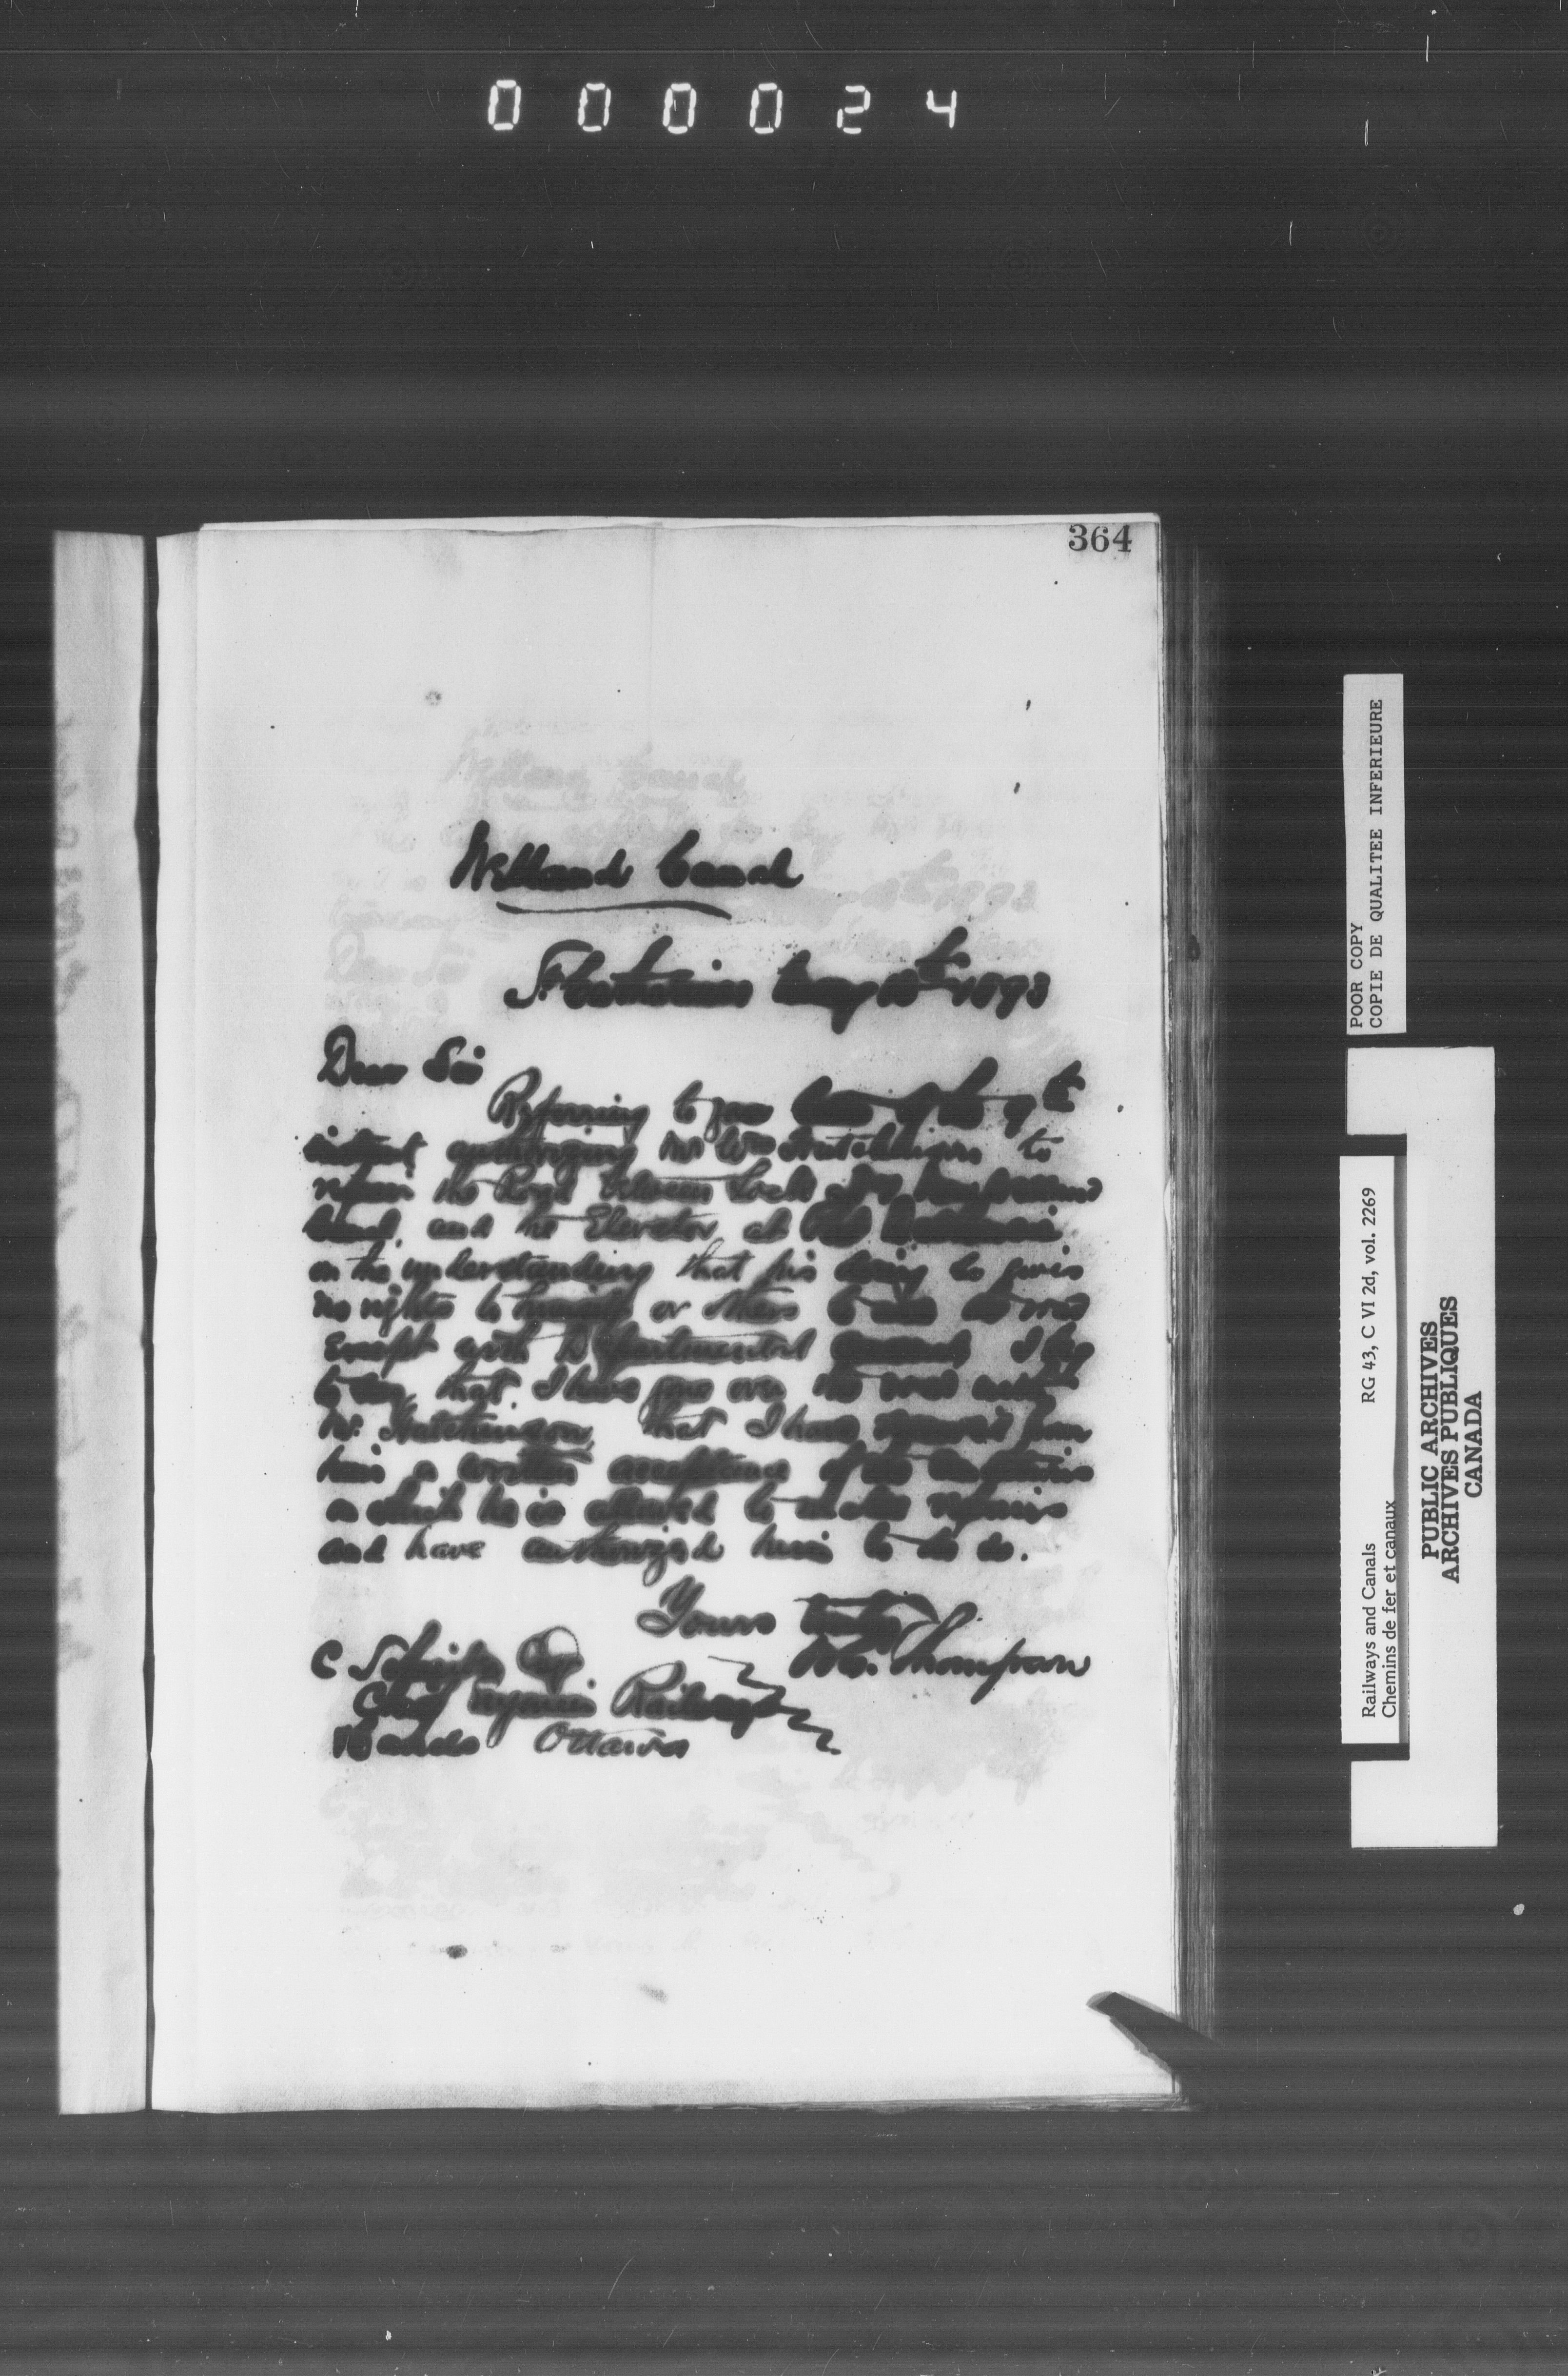 000024
364
Welland Canal
St Catharines May 18th 1893
Dear Sir
Referring to your letter of the 9th
instant authorizing Mr Wm Hutchinson to
repair the Road between Lock
and the Elevator at Port Dalhousie
on the understanding that his doing so gives
no rights to himself or others to use the road
except with Departmental consent, I beg
to say, that I have gone over the road with
Mr Hutchinson, that I have from
him a written acceptance of the conditions
on which he is allowed to make repairs
and have authorized him to do so.
Yours truly
W G. Thompson
C Schreiber Esq
Chief Engineer Railways
& Canals Ottawa
POOR COPY
COPIE DE QUALITEE INFERIEURE
Railways and Canals RG 43, C VI 2d, vol. 2269
Chemins de fer et canaux
PUBLIC ARCHIVES
ARCHIVES PUBLIQUES
CANADA